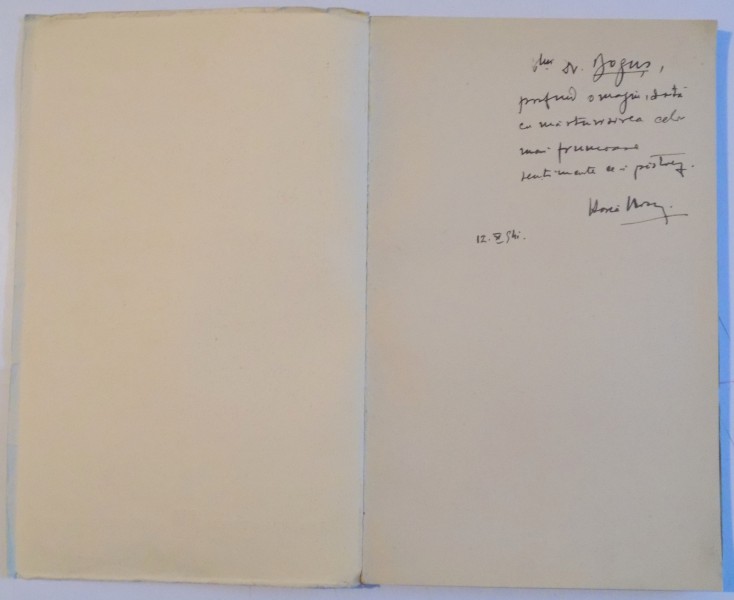 Dr. Boguș,
profund omagiu, odată
cu mărturisirea celor
mai frumoase
sentimente ce-i păstrez.
Horia
12. X